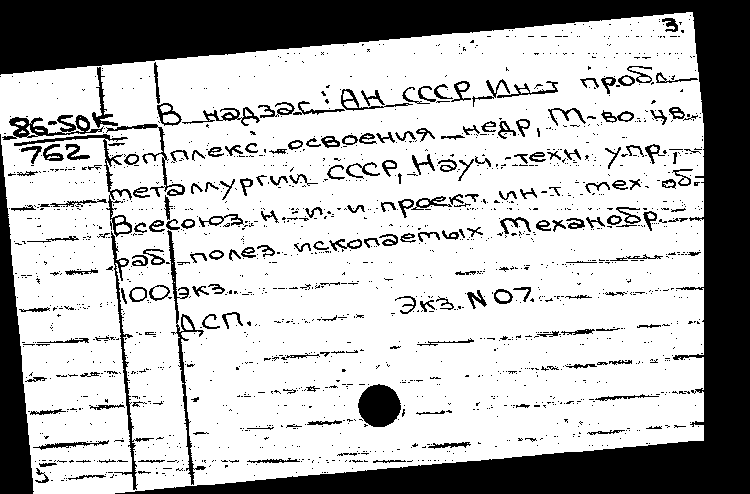 3.
86-50К В надзаг: АН СССР, Ин-т пробл.
762 комплекс. освоения недр, М-во цв.
металлургии СССР, Науч.-техн. упр.,
Всесоюз. н.-и. и проект. ин-т мех. об-
раб. полез. ископаемых Механобр.
100 экз.
ДСП. Экз. N 07.